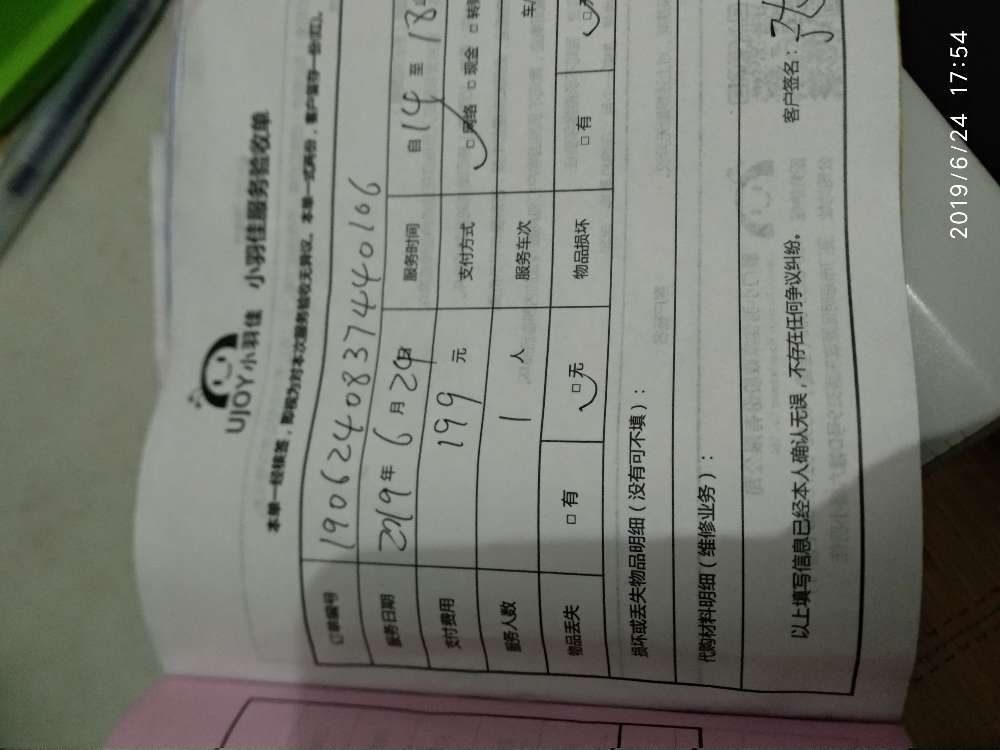 UJOY 小羽佳 小羽佳服务验收单
本单一经核签，即视为对本次服务验收无异议。本单一式两份，客户留存一份(红)。
订单编号 1906240837440106
服务日期 2019年 6月 24日 服务时间 自 14 至 18
支付费用 199 元 支付方式 □ 网络 □ 现金 □ 转
服务人数 1 人 服务车次 车/
物品丢失 □ 有 □ 无 物品损坏 □ 有 □
损坏或丢失物品明细（没有可不填）：
代购材料明细（维修业务）：
以上填写信息已经本人确认无误，不存在任何争议纠纷。 客户签名：
2019/6/24 17:54